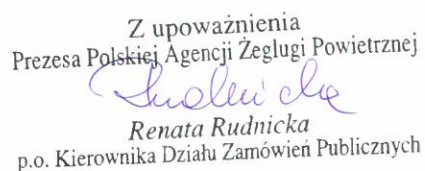 Z upoważnienia
Prezesa Polskiej Agencji Żeglugi Powietrznej
Renata Rudnicka
p.o. Kierownika Działu Zamówień Publicznych